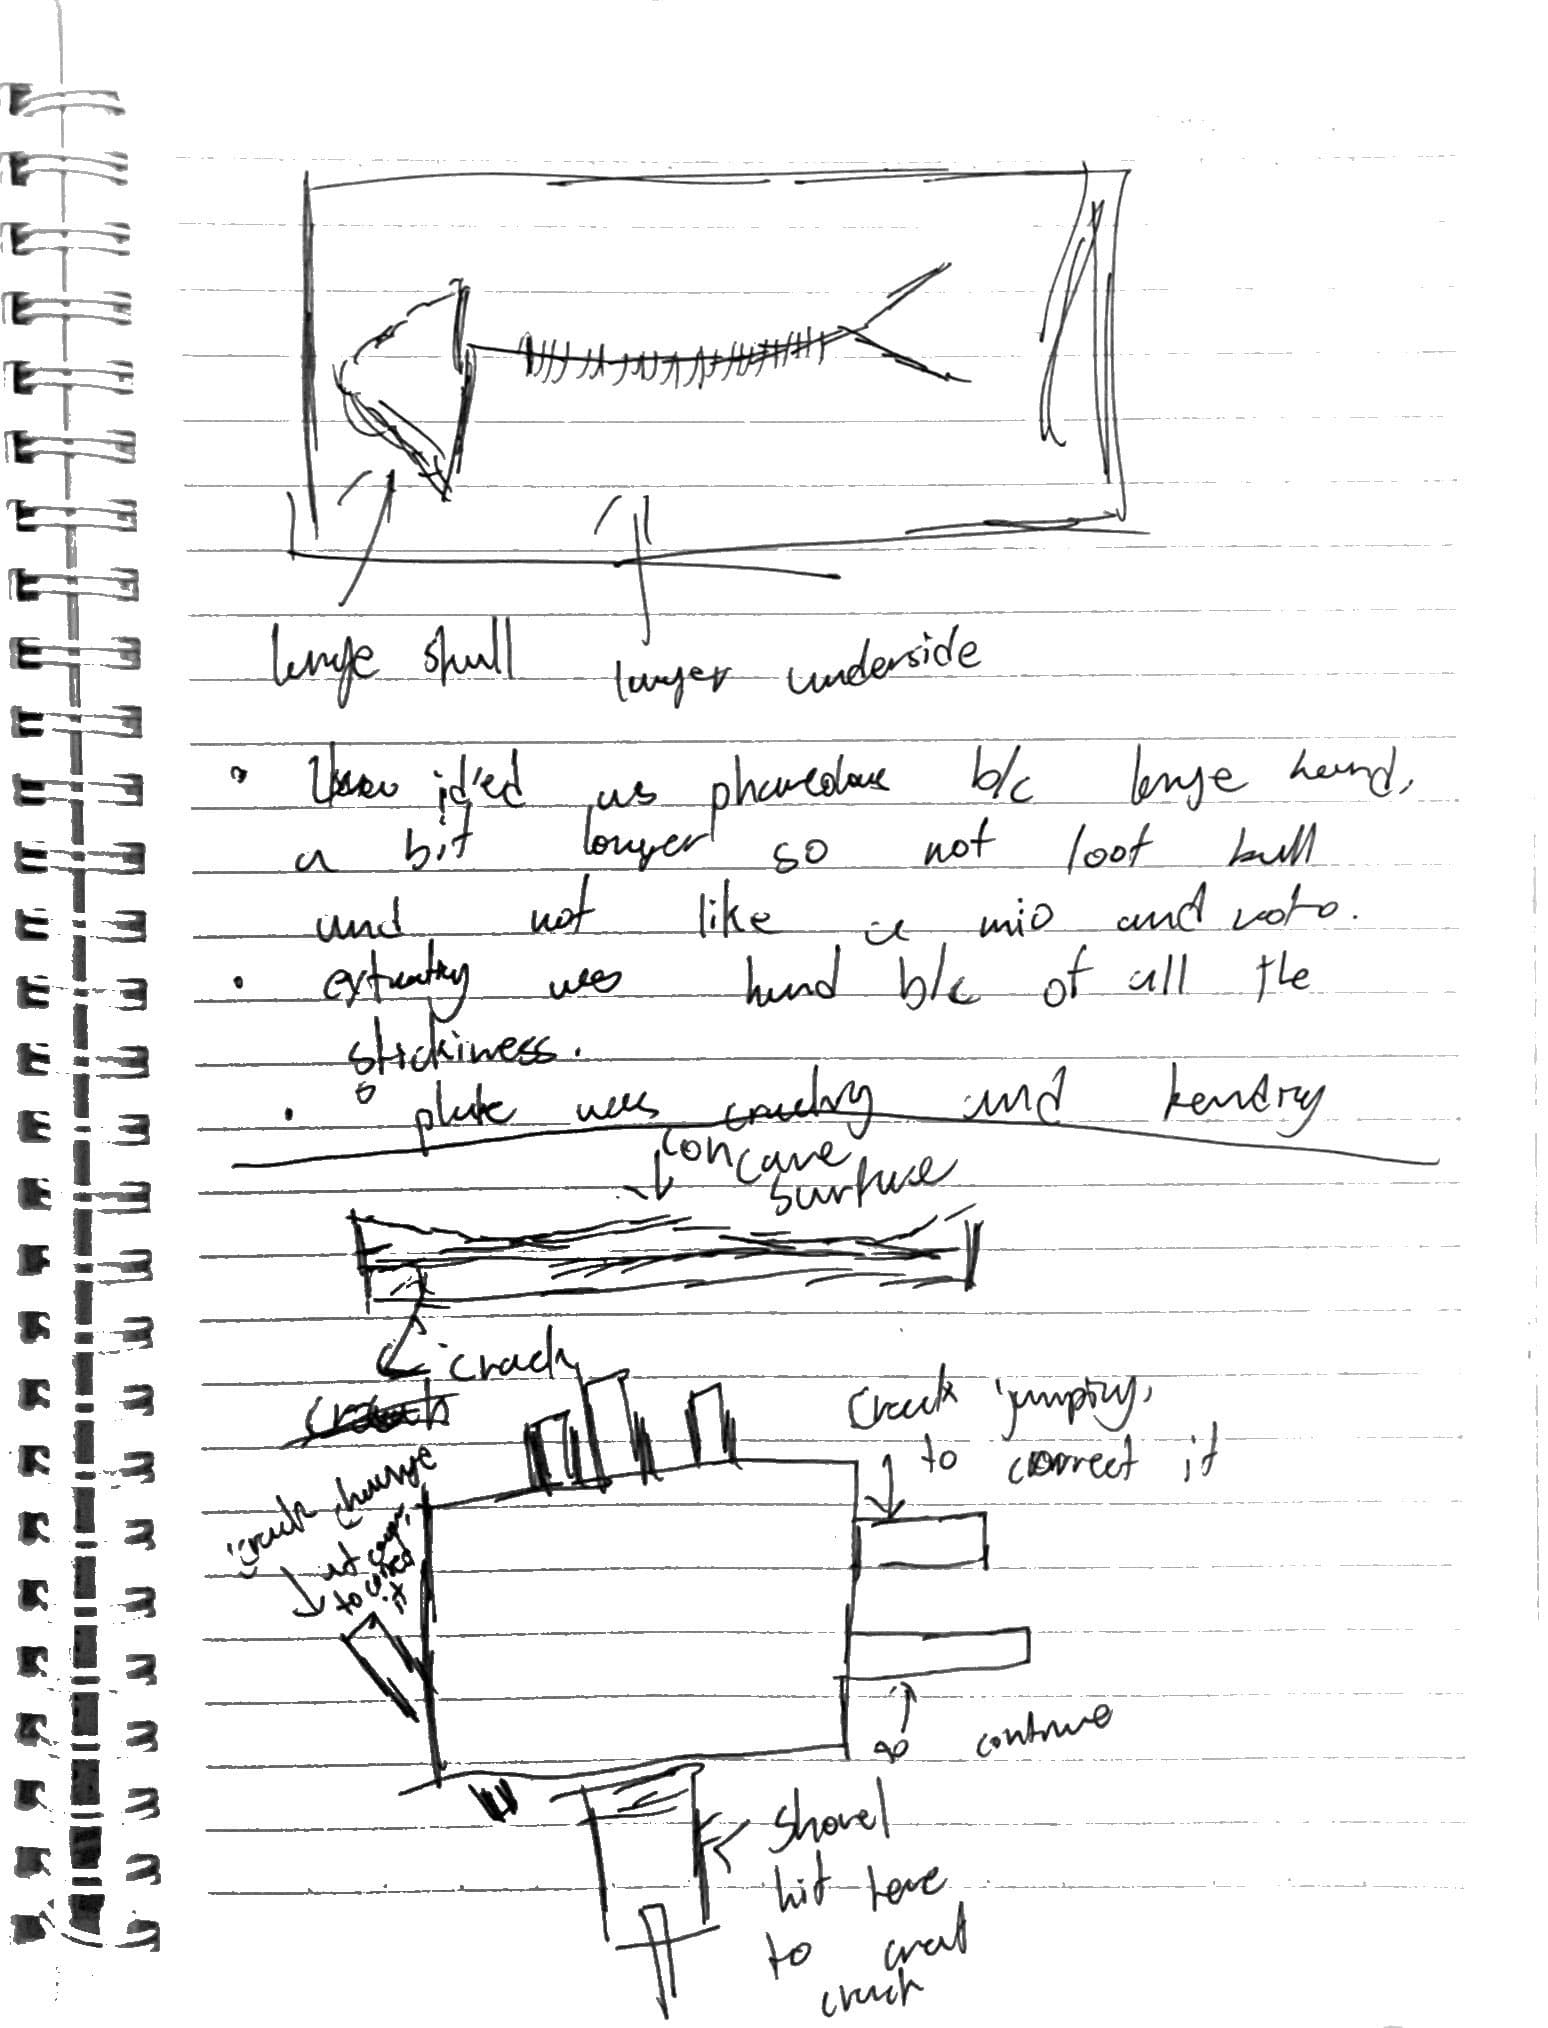 large skull
larger underside
• id'ed as phareodus b/c large head,
a bit longer so not foot ball
and not like a mio and noto.
• extracting was hard b/c of all the
stickiness.
• plate was cracking and bending
concave
surface
crack
crack
crack jumping,
to correct it
crack change
at
to
it
go continue
shovel
hit here
to creat
crack